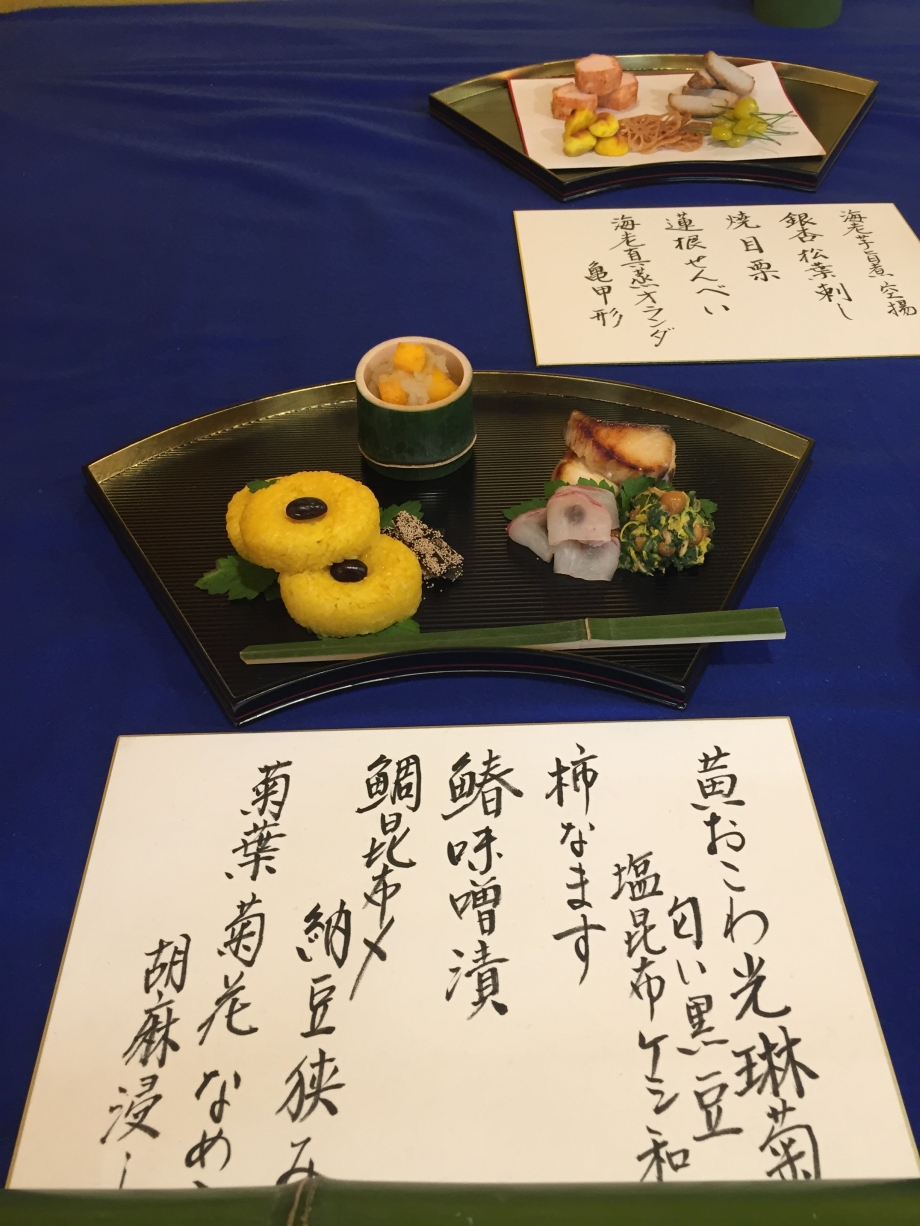 海老芋旨煮空揚
銀杏松葉刺し
焼目栗
蓮根せんべい
海老真蒸オランダ
亀甲形
黄おこわ光琳菊
匂い黒豆
塩昆布ケシ和
柿なます
鰆味噌漬
鯛昆布〆
納豆狭み
菊葉菊花なめ
胡麻浸し